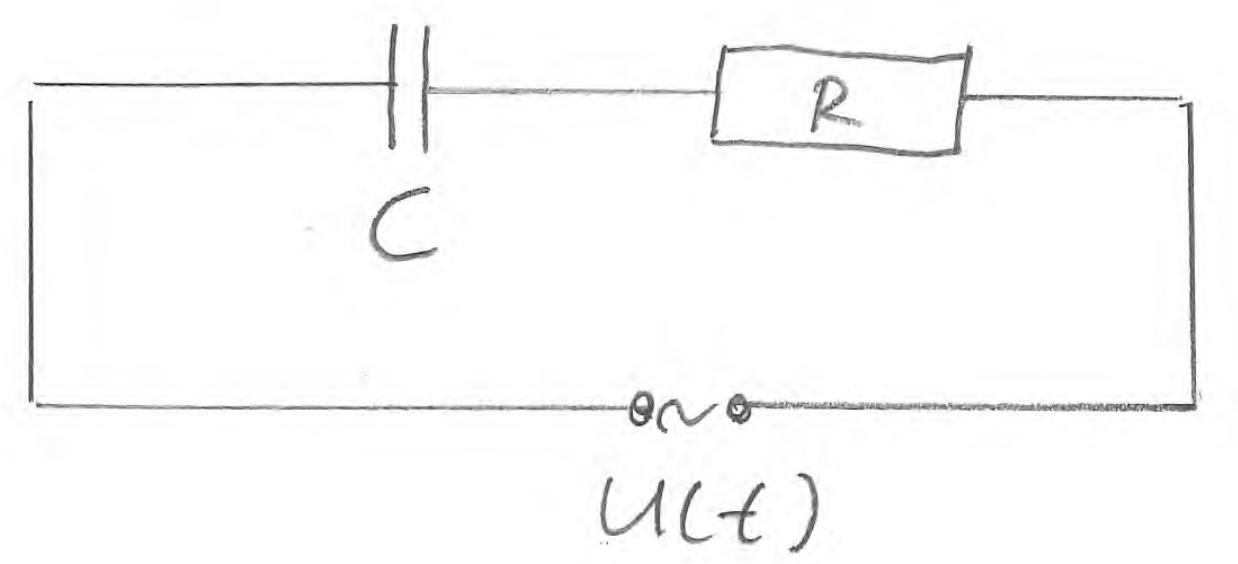 R
C
~
U(t)